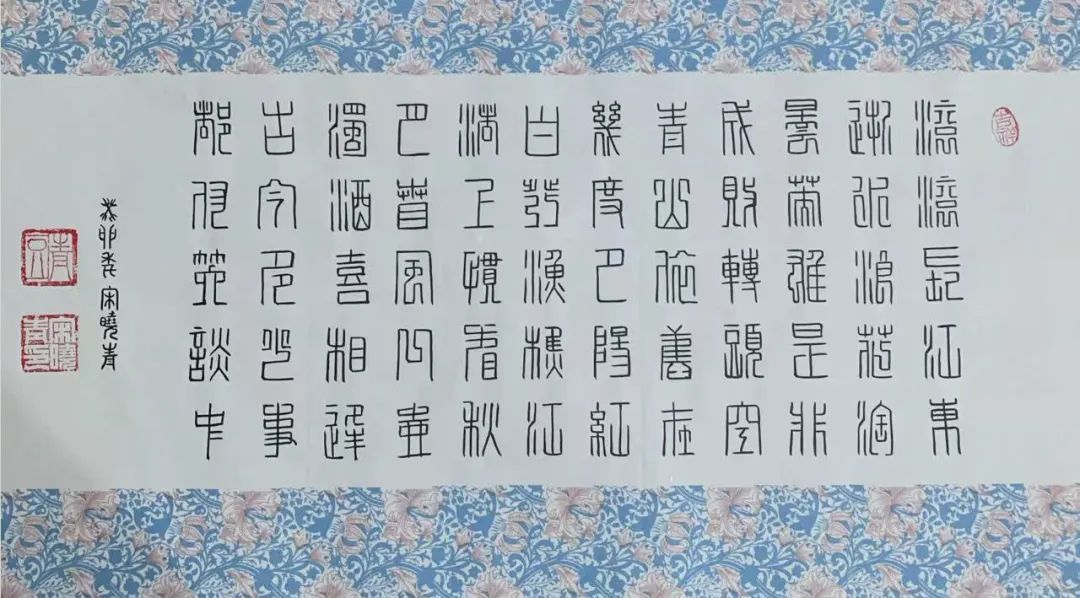 滾滾長江東
逝水浪花淘
盡英雄是非
成敗轉頭空
青山依舊在
幾度夕陽紅
白髮漁樵江
渚上慣看秋
月春風一壺
濁酒喜相逢
古今多少事
都付笑談中
癸卯年宋曉青
宋曉青印